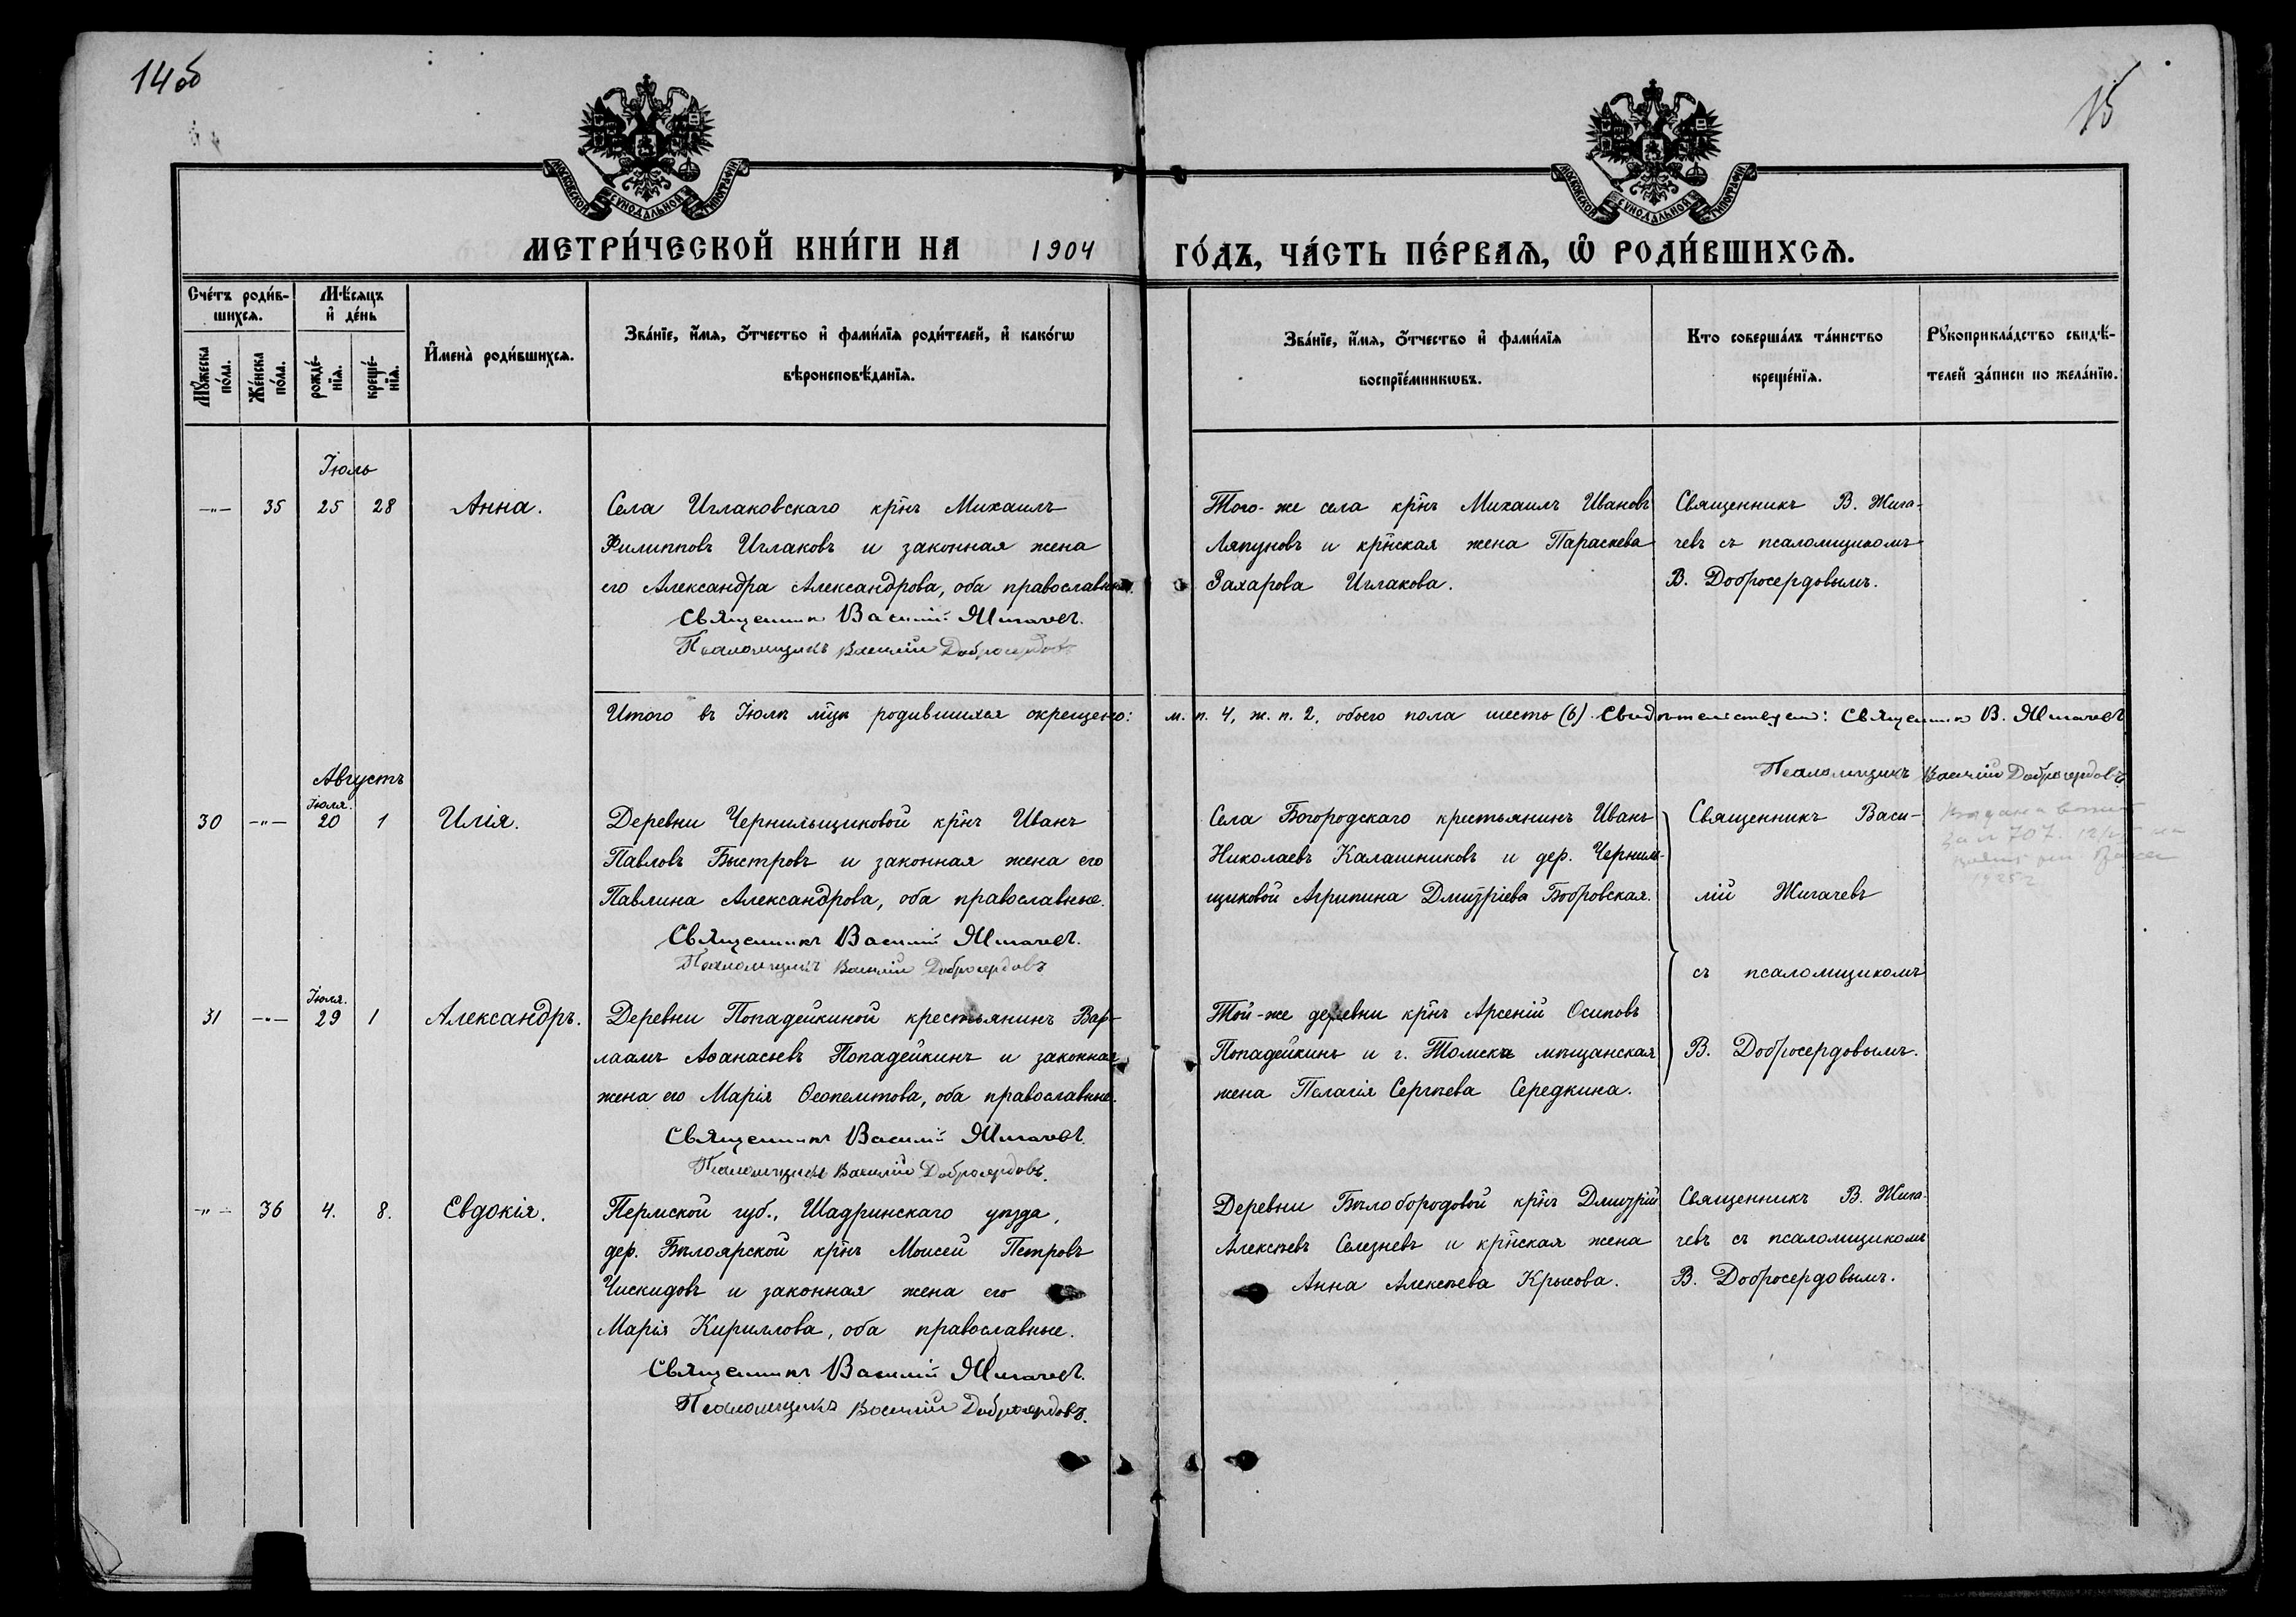 14об
15
МОСКОВСКОЙ СѴНОДАЛЬНОЙ ТИПОГРАФІИ
МОСКОВСКОЙ СѴНОДАЛЬНОЙ ТИПОГРАФІИ
МЕТРИ́ЧЕСКОЙ КНИ́ГИ НА 1904 ГО́ДЪ, ЧА́СТЬ ПЕ́РВАѦ, Ѡ҆ РОДИ́ВШИХСѦ.
Сче́тъ роди́в-
шихсѧ.
Мѣ́сѧцъ
и҆ де́нь
Мꙋ́жеска
по́ла.
Же́нска
по́ла.
рожде́-
нїѧ.
креще́-
нїѧ.
И҆мена̀ роди́вшихсѧ.
Зва́нїе, и҆́мѧ, ѻ҆́тчество и҆ фами́лїѧ роди́телей, и҆ како́гѡ
вѣроисповѣ́данїѧ.
Зва́нїе, и҆́мѧ, ѻ҆́тчество и҆ фами́лїѧ
воспрїе́мникѡвъ.
Кто соверша́лъ та́инство
креще́нїѧ.
Рꙋкоприкла́дство свидѣ́-
телей за́писи по жела́нїю.
Іюль
-"- 35 25 28 Анна.
Села Иглаковскаго крнъ Михаилъ
Филипповъ Иглаковъ и законная жена
его Александра Александрова, оба православные.
Священникъ Василій Жигачевъ.
Псаломщикъ Василій Добросердовъ
Того-же села крнъ Михаилъ Ивановъ
Ляпуновъ и крнская жена Параскева
Захарова Иглакова.
Священникъ В. Жига-
чевъ съ псаломщикомъ
В. Добросердовымъ.
Итого въ Іюлѣ мцѣ родившихся окрещено: м. п. 4, ж. п. 2, обоего пола шесть (6). Свидѣтельствуемъ: Священникъ В. Жигачевъ
Псаломщикъ Василій Добросердовъ
Августъ
Іюля.
30 -"- 20 1 Илія.
Деревни Чернильщиковой крнъ Иванъ
Павловъ Быстровъ и законная жена его
Павлина Александрова, оба православные.
Священникъ Василій Жигачевъ.
Псаломщикъ Василій Добросердовъ
Села Богородскаго крестьянинъ Иванъ
Николаевъ Калашниковъ и дер. Черниль-
щиковой Агрипина Димитріева Бобровская.
Священникъ Васи-
лій Жигачевъ
съ псаломщикомъ
В. Добросердовымъ.
707.
1925 г
Іюля.
31 -"- 29 1 Александръ.
Деревни Попадейкиной крестьянинъ Вар-
лаамъ Аѳанасьевъ Попадейкинъ и законная
жена его Марія Ѳеопемптова, оба православные.
Священникъ Василій Жигачевъ.
Псаломщикъ Василій Добросердовъ.
Той-же деревни крнъ Арсеній Осиповъ
Попадейкинъ и г. Томска мѣщанская
жена Пелагія Сергѣева Середкина.
-"- 36 4. 8. Евдокія.
Пермской губ., Шадринскаго уѣзда,
дер. Бѣлоярской крнъ Моисей Петровъ
Чискидовъ и законная жена его
Марія Кириллова, оба православные.
Священникъ Василій Жигачевъ.
Псаломщикъ Василій Добросердовъ.
Деревни Бѣлобородовой крнъ Димитрій
Алексѣевъ Селезневъ и крнская жена
Анна Алексѣева Крысова.
Священникъ В. Жига-
чевъ съ псаломщикомъ
В. Добросердовымъ.